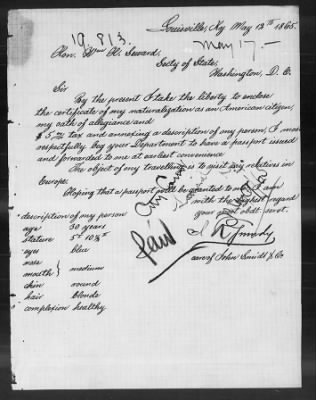 Louisville, Ky May 12th 1865.
19,813.
May 17. —
Hon. Wm H. Seward,
Secty of State,
Washington, D. C.
Sir
By the present I take the liberty to enclose
the certificate of my naturalization as an American citizen,
my oath of allegiance and
$ 5,— tax and annexing a description of my person, I most
respectfully beg your Department to have a passport issued
and forwarded to me at earliest convenience
The object of my travelling is to visit my relatives in
Europe.
Hoping that a passport will be granted to me, I am
with the highest regard
your most obdt. servt.
Paid
care of John & Co
description of my person
age 30 years
stature 5' 10
eyes blue
nose
mouth } medium
chin round
hair blonde
complexion healthy